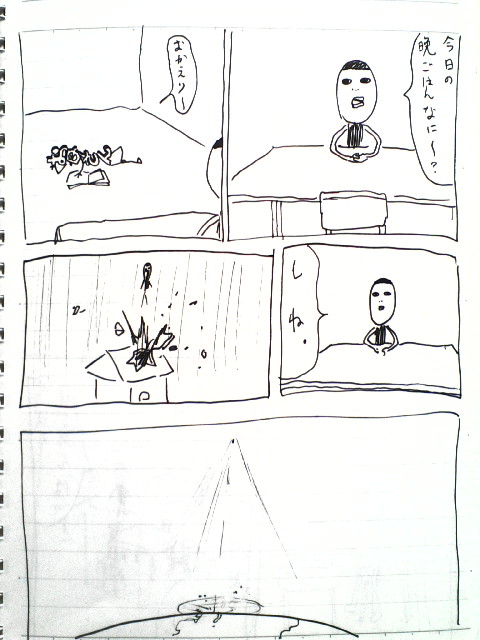 今日の
晩ごはんなに〜？
おかえりー
しね。